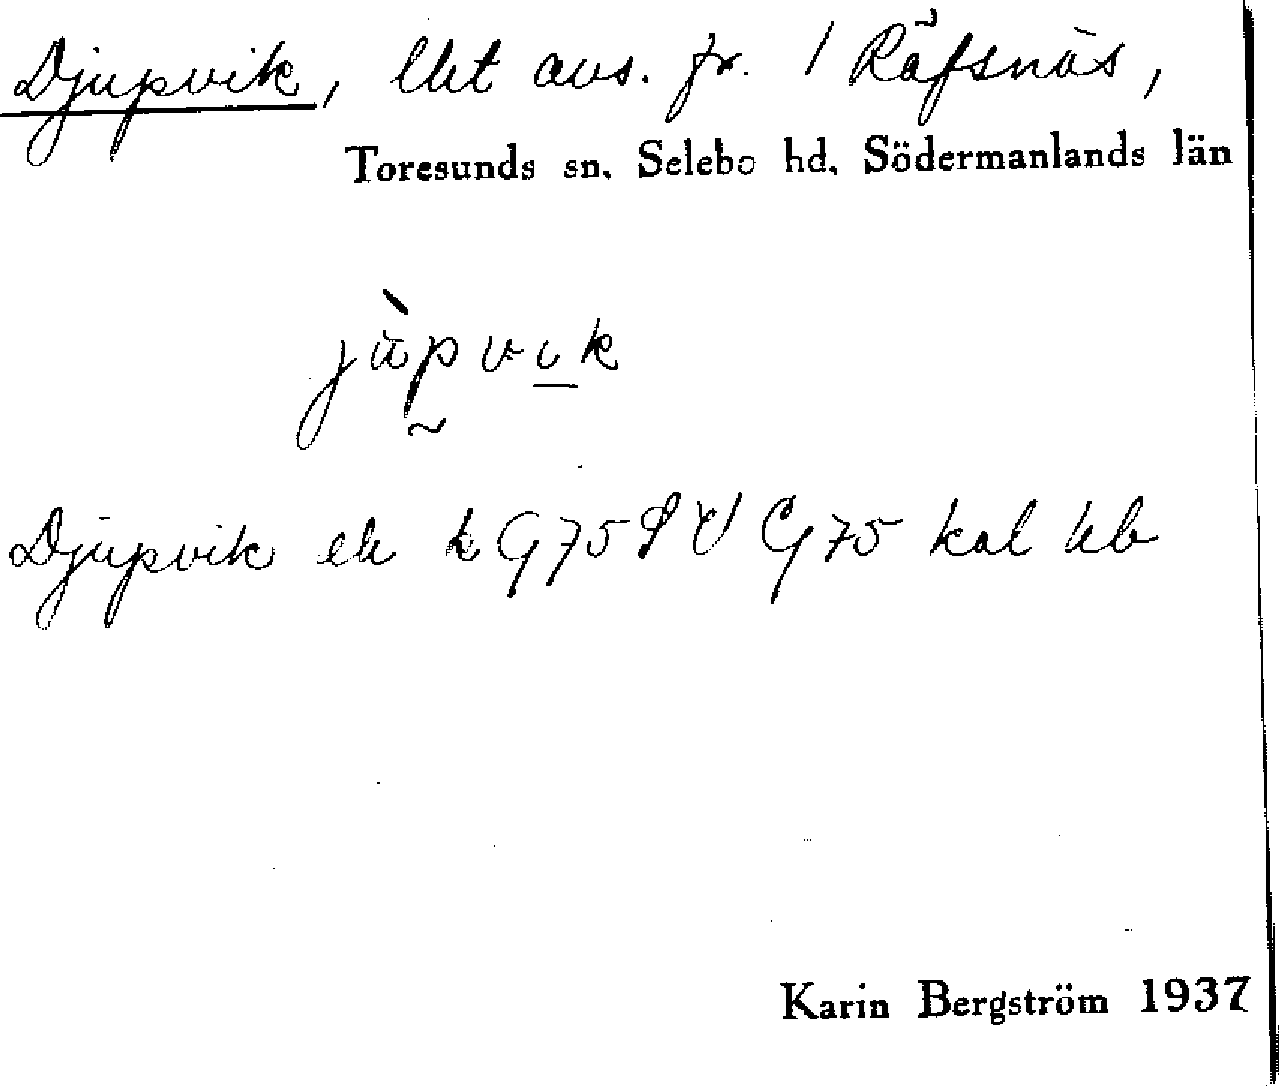 Djupvik, lht avs. fr. 1 Räfsnäs,
Toresunds sn. Selebo hd. Södermanlands län
jùpvik
Djupvik ek G75 G75 kal
Karin Bergström 1937